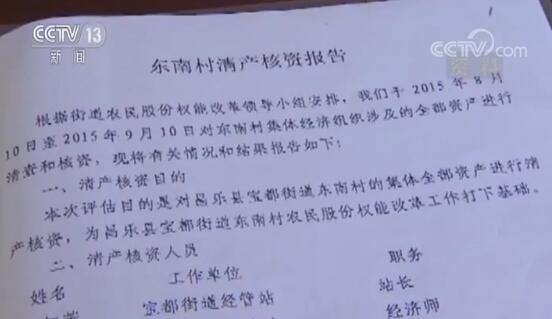 CCTV 13
新闻
CCTV.com
资料
东南村清产核资报告
根据街道农民股份权能改革领导小组安排，我们于2015年8月
10日至2015年9月10日对东南村集体经济组织涉及的全部资产进行
清查和核资，现将有关情况和结果报告如下：
一、清产核资目的
本次评估目的是对昌乐县宝都街道东南村的集体全部资产进行清
产核资，为昌乐县宝都街道东南村农民股份权能改革工作打下基础。
二、清产核资人员
姓名 工作单位 职务
宝都街道经管站 站长
经济师